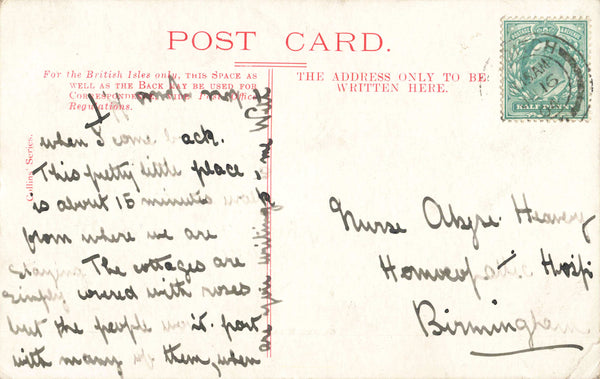 POST CARD.
For the British Isles only, THIS SPACE AS
WELL AS THE BACK MAY BE USED FOR
Regulations.
THE ADDRESS ONLY TO BE
WRITTEN HERE.
Collins' Series.
HALF PENNY
when I come back.
This pretty little place
is about 15 minutes
from where we are
Staying The cottages are
Simply covered with roses
but the people won't part
with many of them, when
are you writing to me With
Nurse Heavey
Homoeopathic Hospi
Birmingham